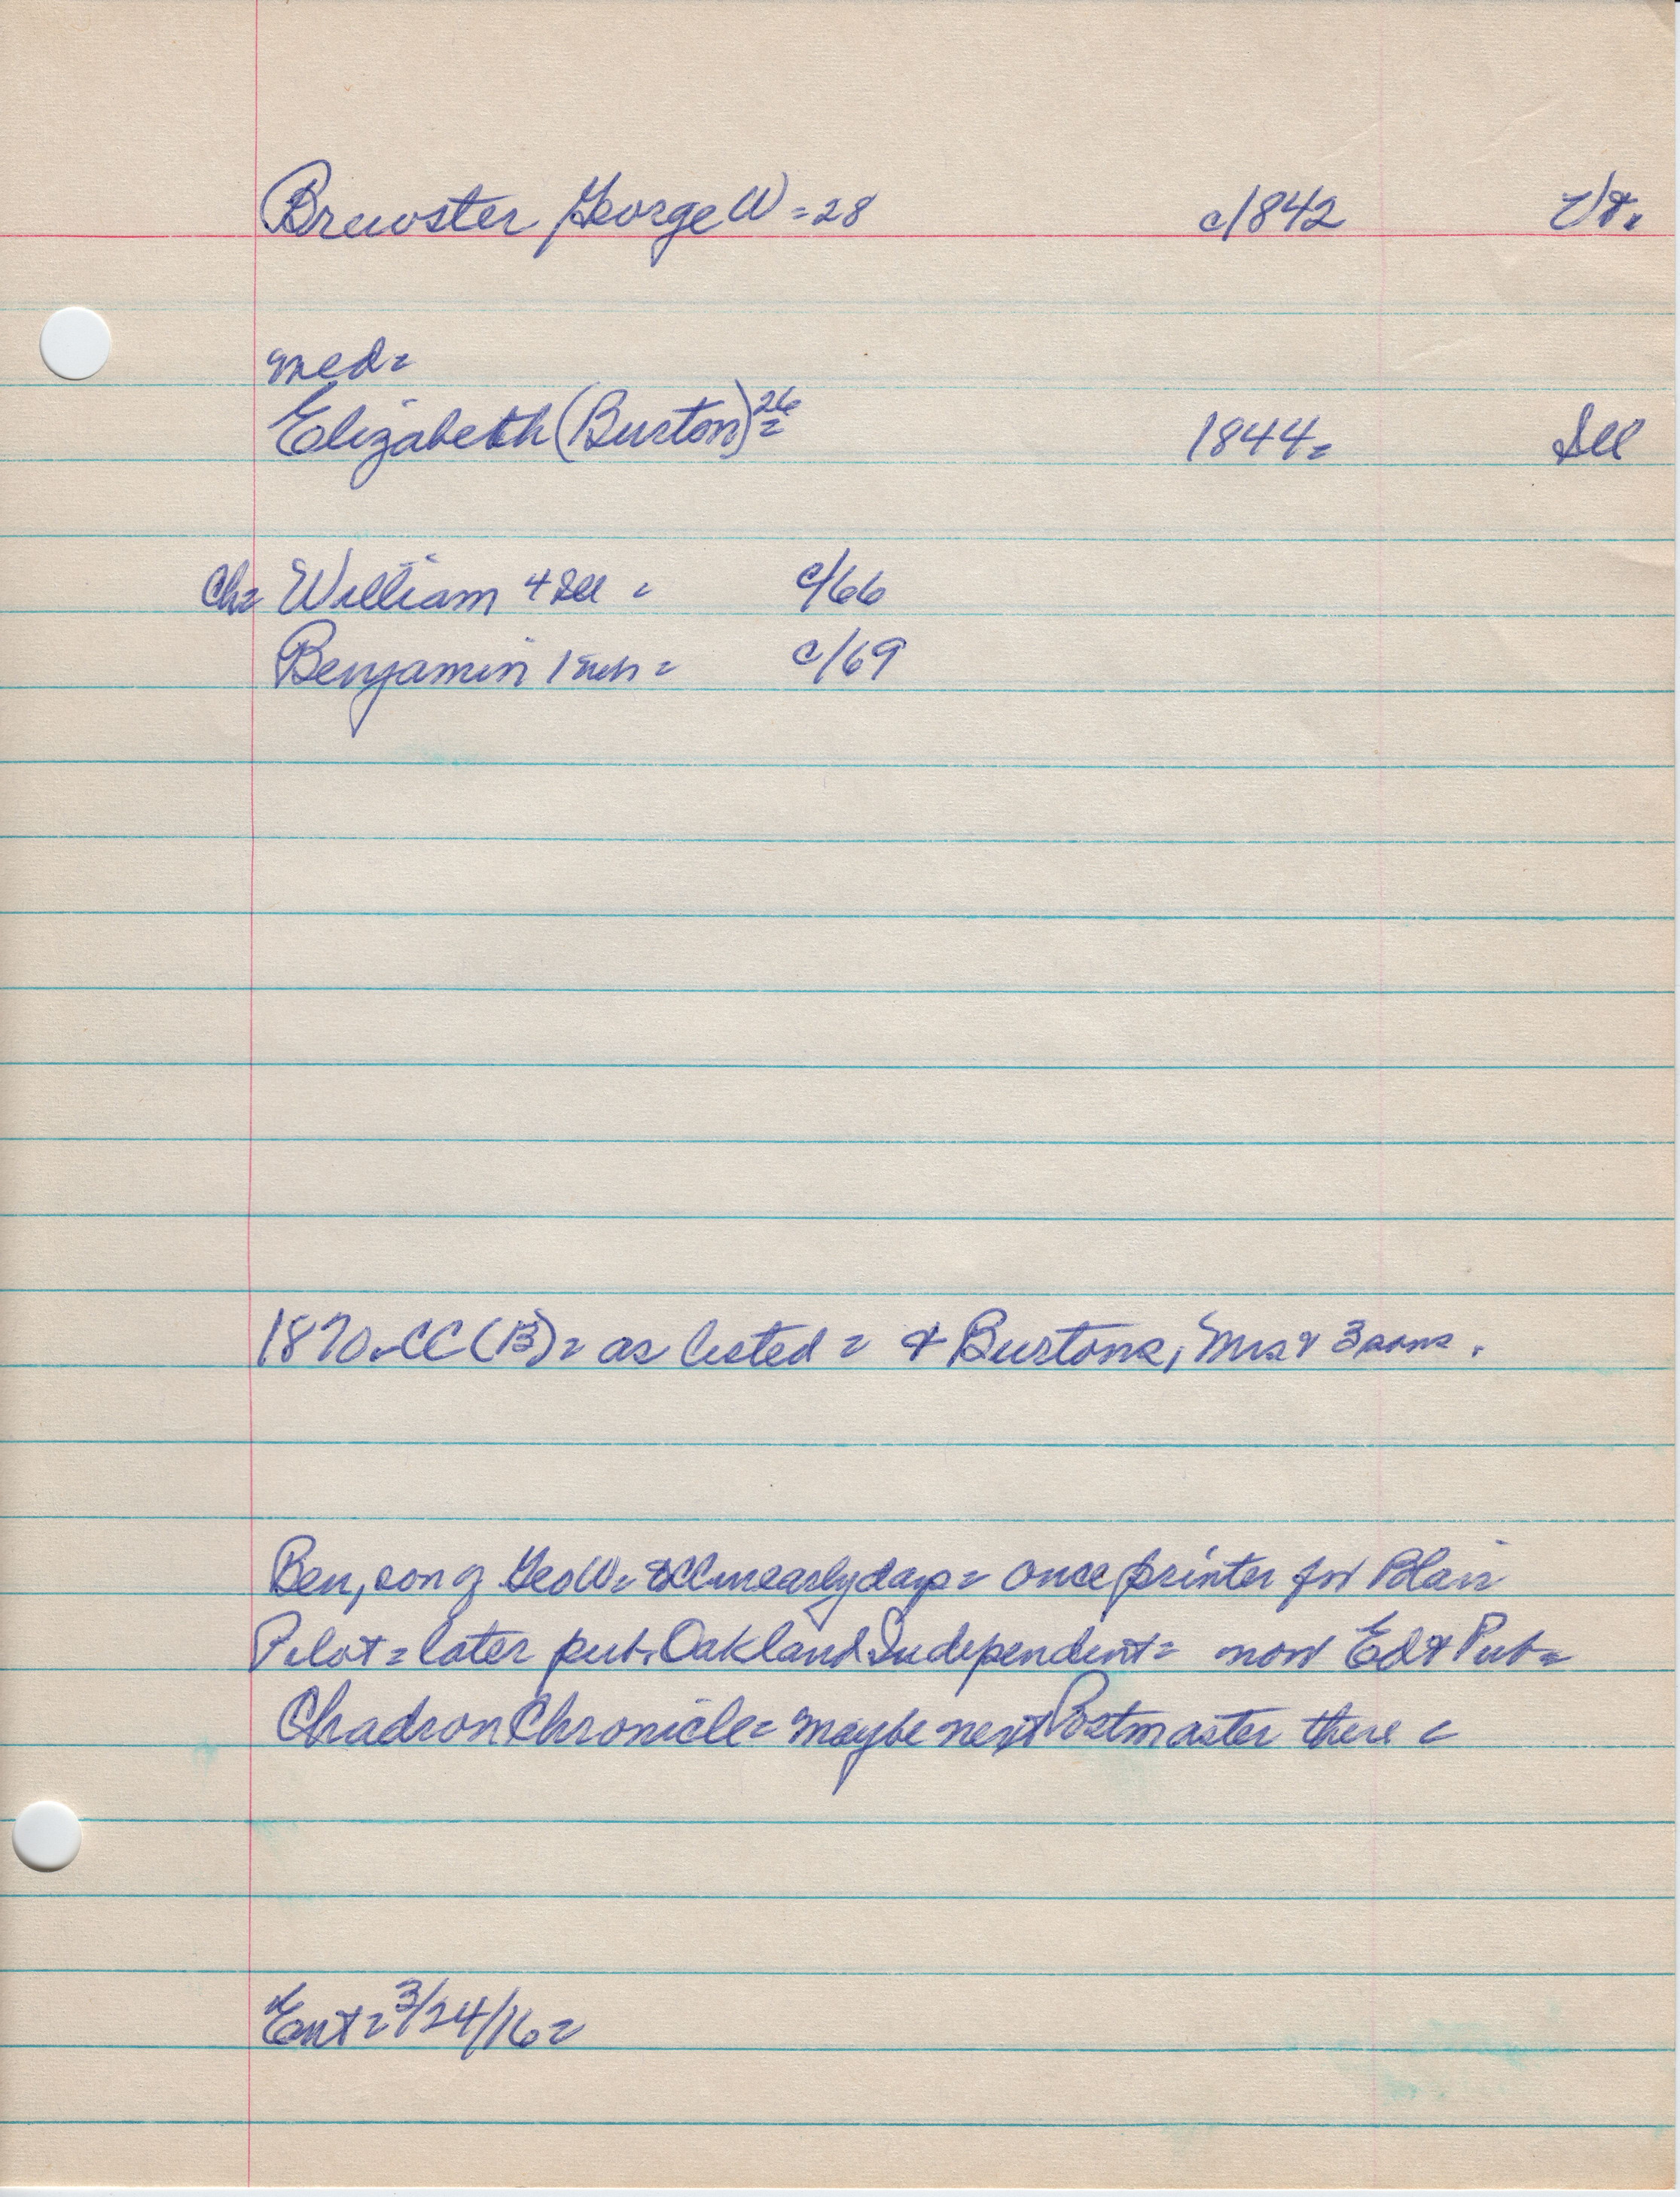 Brewster George W = 28 c/1842 Vt.
med =
Elizabeth (Burton) 26 = 1844 = Ill
Ch = William 4 Ill = c/66
Benjamin 1 Neb = c/69
1870 - CC (B) = as listed = & Burtons, Mrs & 3 sons.
Ben, son of Geo W = CC in early days = once printer for Blair
Pilot = later pub. Oakland Independent = now Ed & Pub =
Chadron Chronicle = maybe next Postmaster there =
Ent = 3/24/16 =